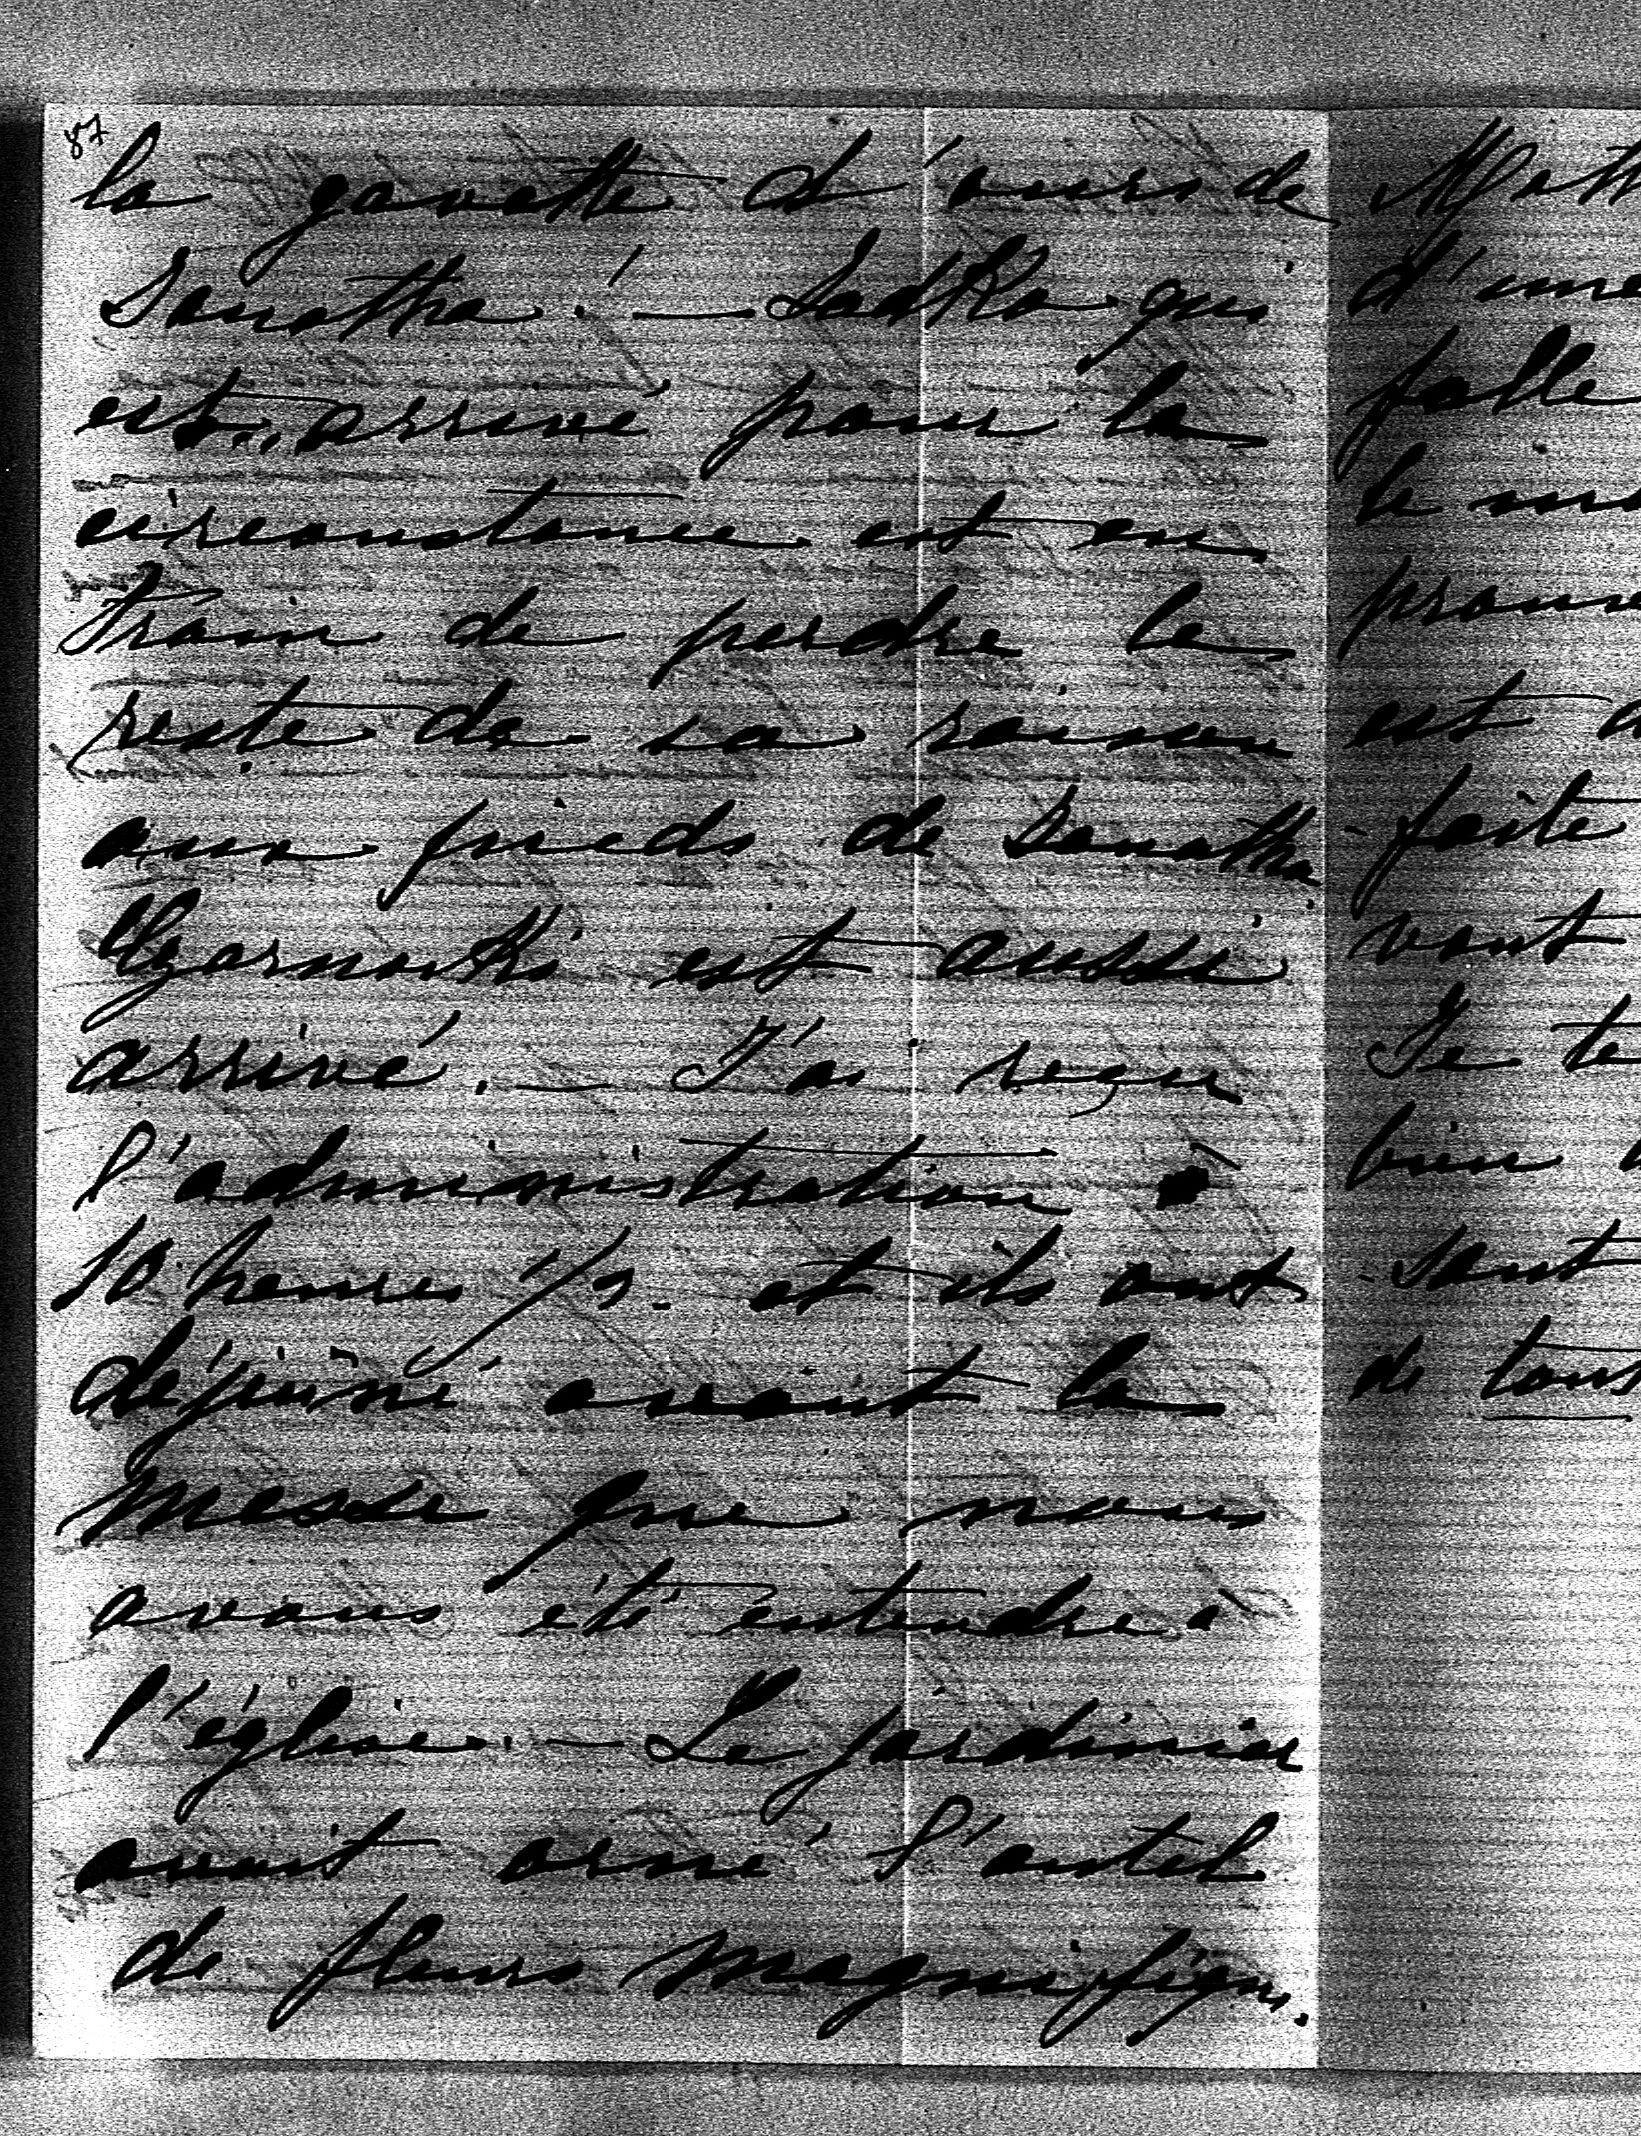 87
la gavotte d'ours de
Sonatka! — Ladko qui
est arrivé pour la
circonstance est en
train de perdre le
reste de sa raison
aux pieds de Sonatka.
Czarnowski est aussi
arrivé. — J'ai reçu
l'administration à
10 heures 1/2 et ils ont
déjeuné avant la
messe que nous
avons été entendre à
l'église. — Le jardinier
avait orné l'autel
de fleurs magnifiques.
d'une
folle
est
faite
vont
Je te
bien
sont
de tous